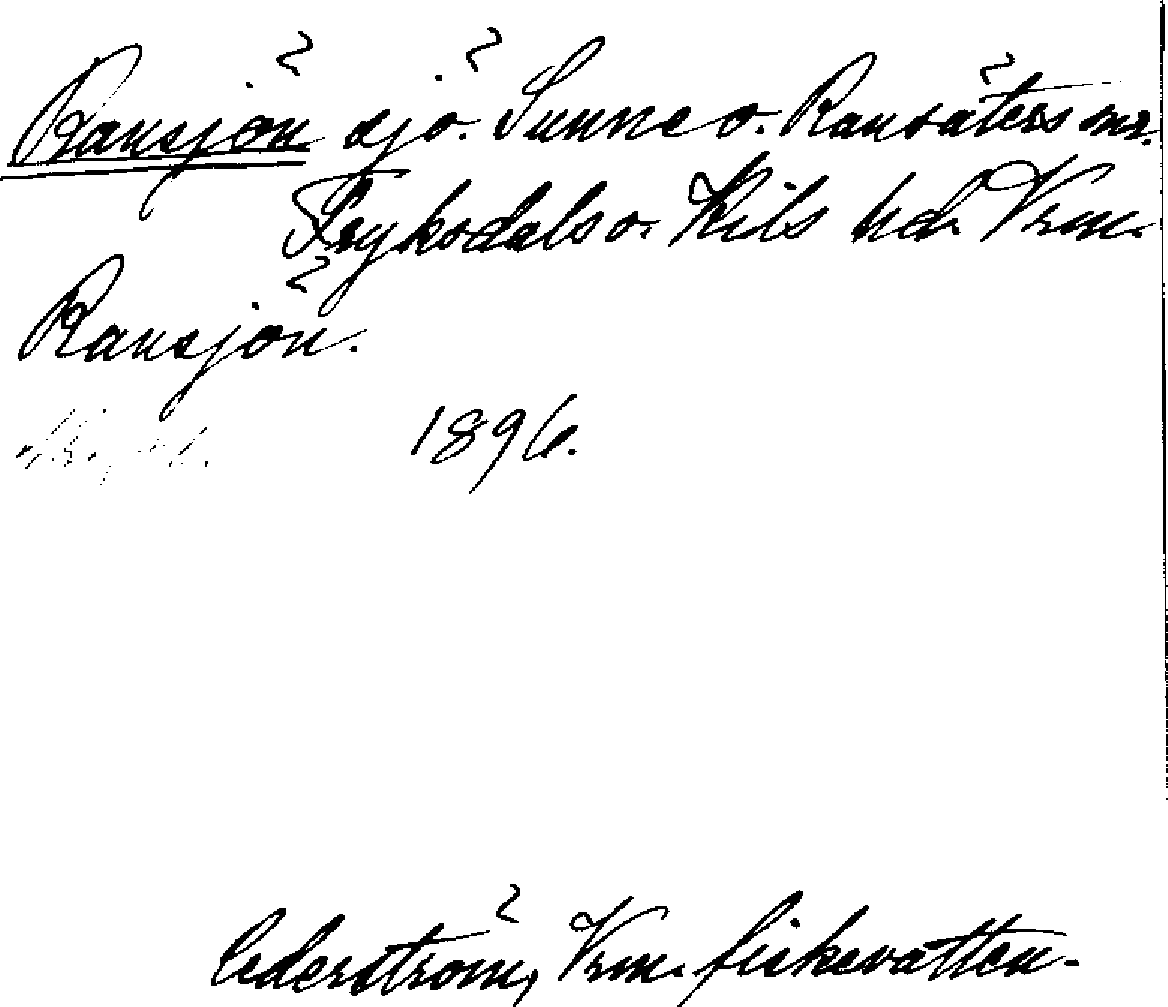 Ransjön sjö. Sunne o. Ransäters snr.
Fryksdals o. Kils hd. Vrm.
Ransjön.
1896.
Cederström, Vrm. fiskevatten.